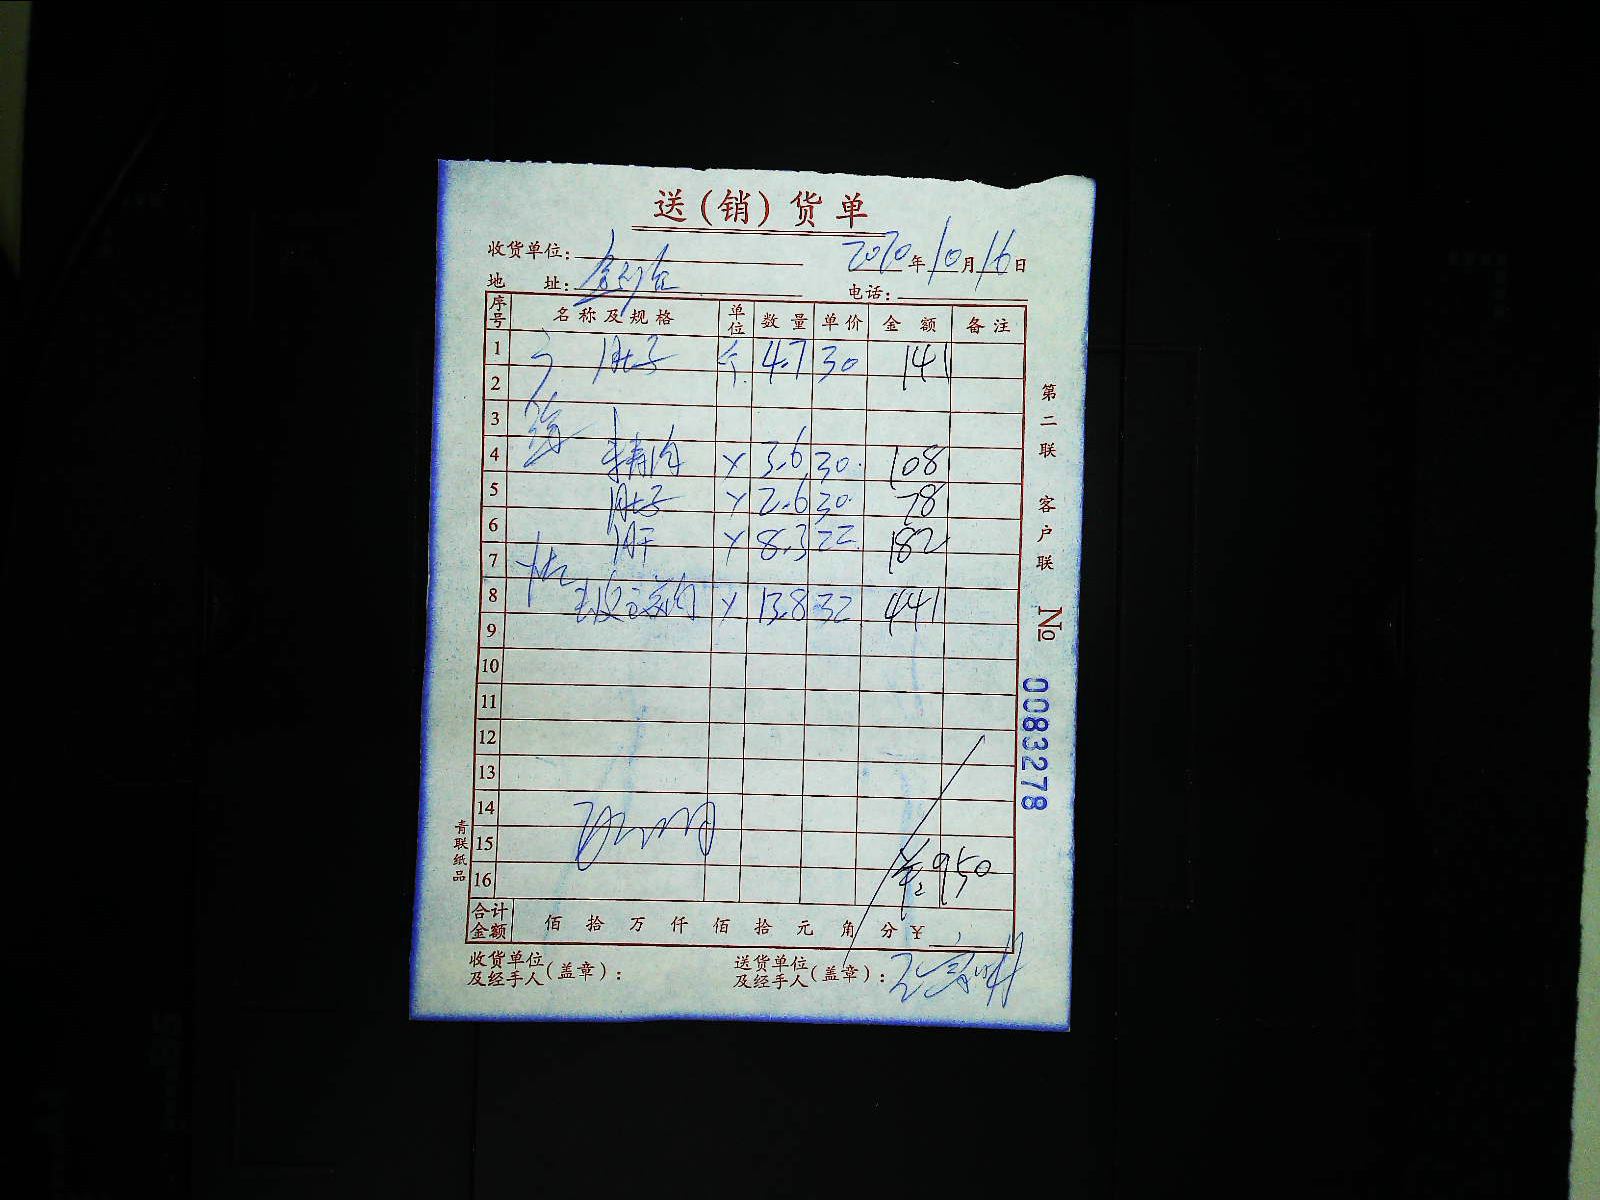 送（销）货单
收货单位： 2020年10月16日
地 址： 电话：
序号 名称及规格 单位 数量 单价 金额 备注
1 肚子 个 4.7 30 141
2
3
4 精肉 Y 3.6 30 108
5 肚子 Y 2.6 30 78
6 肝 Y 8.3 22 182
7
8 Y 13.8 32 441
9
10
11
12
13
14
15
16 ¥950
合计金额 佰 拾 万 仟 佰 拾 元 角 分 ¥
收货单位及经手人（盖章）： 送货单位及经手人（盖章）：
第二联 客户联 No 0083278
青联纸品